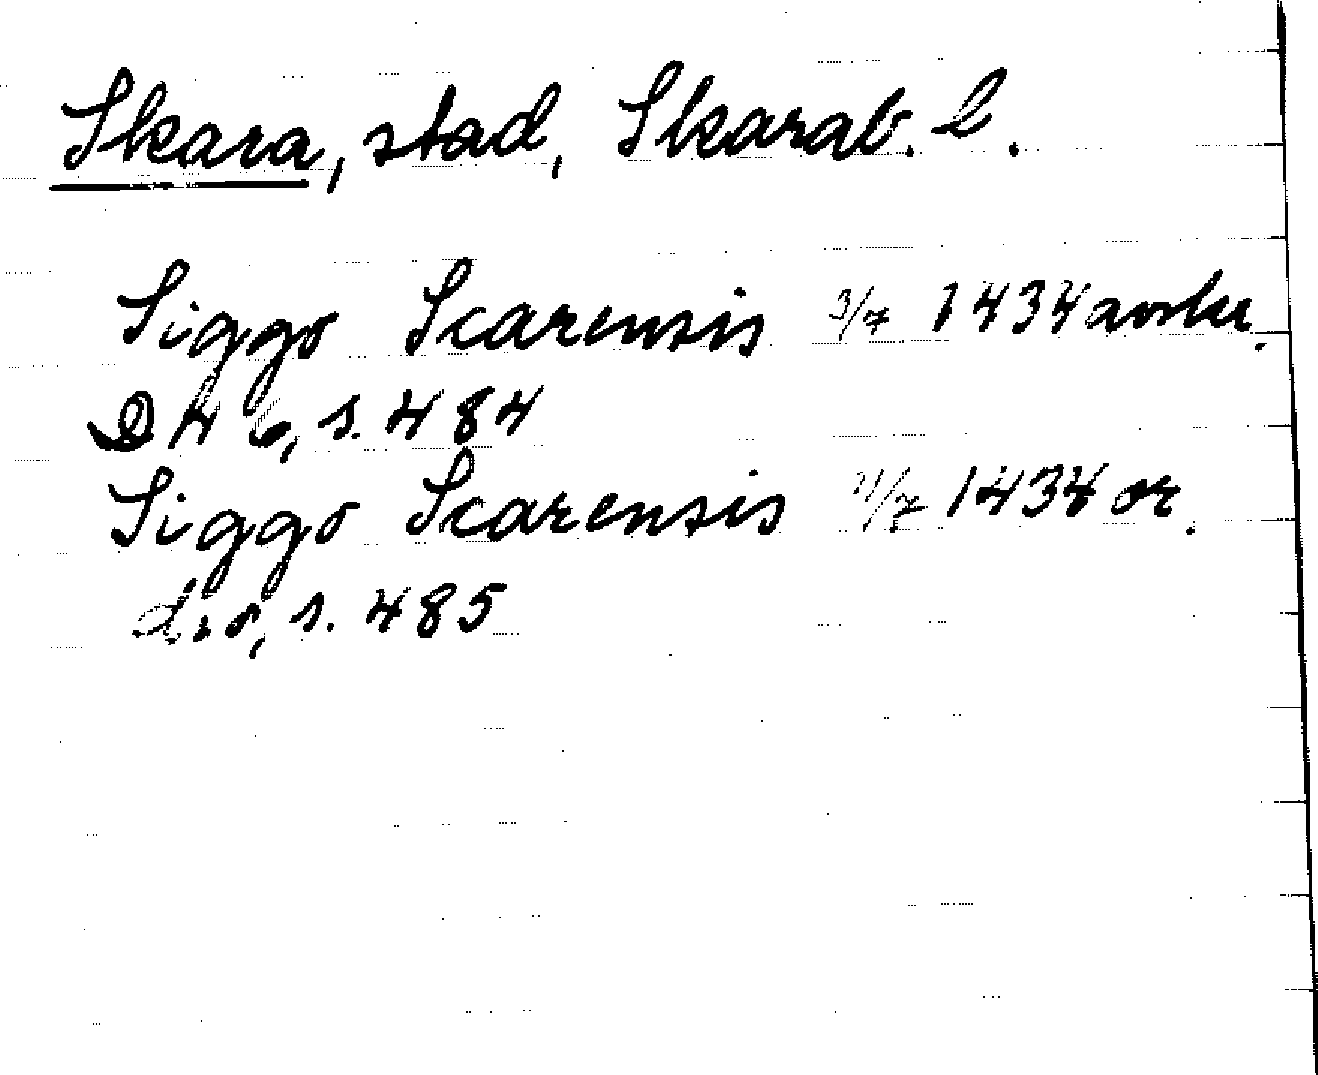 Skara, stad, Skarab. l.
Siggo Scarensis 3/7 1434 avskr.
DN 6, s. 484
Siggo Scarensis 11/7 1434 or.
d:o, s. 485